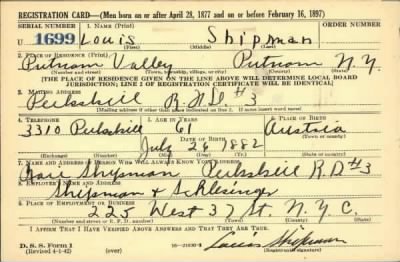 REGISTRATION CARD—(Men born on or after April 28, 1877 and on or before February 16, 1897)
SERIAL NUMBER 1. NAME (Print) ORDER NUMBER
U 1699 Louis Shipman
(First) (Middle) (Last)
2. PLACE OF RESIDENCE (Print)
Putnam Valley Putnam N.Y.
(Number and street) (Town, township, village, or city) (County) (State)
[THE PLACE OF RESIDENCE GIVEN ON THE LINE ABOVE WILL DETERMINE LOCAL BOARD
JURISDICTION; LINE 2 OF REGISTRATION CERTIFICATE WILL BE IDENTICAL]
3. MAILING ADDRESS
Peekskill R.F.D. #3
[Mailing address if other than place indicated on line 2. If same insert word same]
4. TELEPHONE 5. AGE IN YEARS 6. PLACE OF BIRTH
3310 Peekskill 61 Austria
DATE OF BIRTH (Town or county)
July 26 1882
(Exchange) (Number) (Mo.) (Day) (Yr.) (State or country)
7. NAME AND ADDRESS OF PERSON WHO WILL ALWAYS KNOW YOUR ADDRESS
Shipman Peekskill R.D #3
8. EMPLOYER'S NAME AND ADDRESS
Shipman & Schlesinger
9. PLACE OF EMPLOYMENT OR BUSINESS
225 West 37 St. N.Y.C.
(Number and street or R. F. D. number) (Town) (County) (State)
I AFFIRM THAT I HAVE VERIFIED ABOVE ANSWERS AND THAT THEY ARE TRUE.
D. S. S. Form 1
(Revised 4-1-42) (over) Louis Shipman
(Registrant's signature)